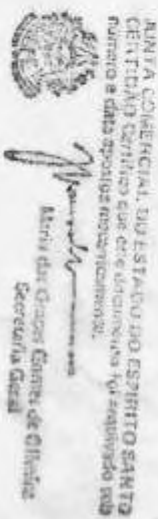 JUNTA COMERCIAL DO ESTADO DO ESPIRITO SANTO
CERTIDÃO Certifico que este documento foi arquivado sob
número e data apostos mecanicamente.
Maria das Graças Gomes de Oliveira
Secretária Geral